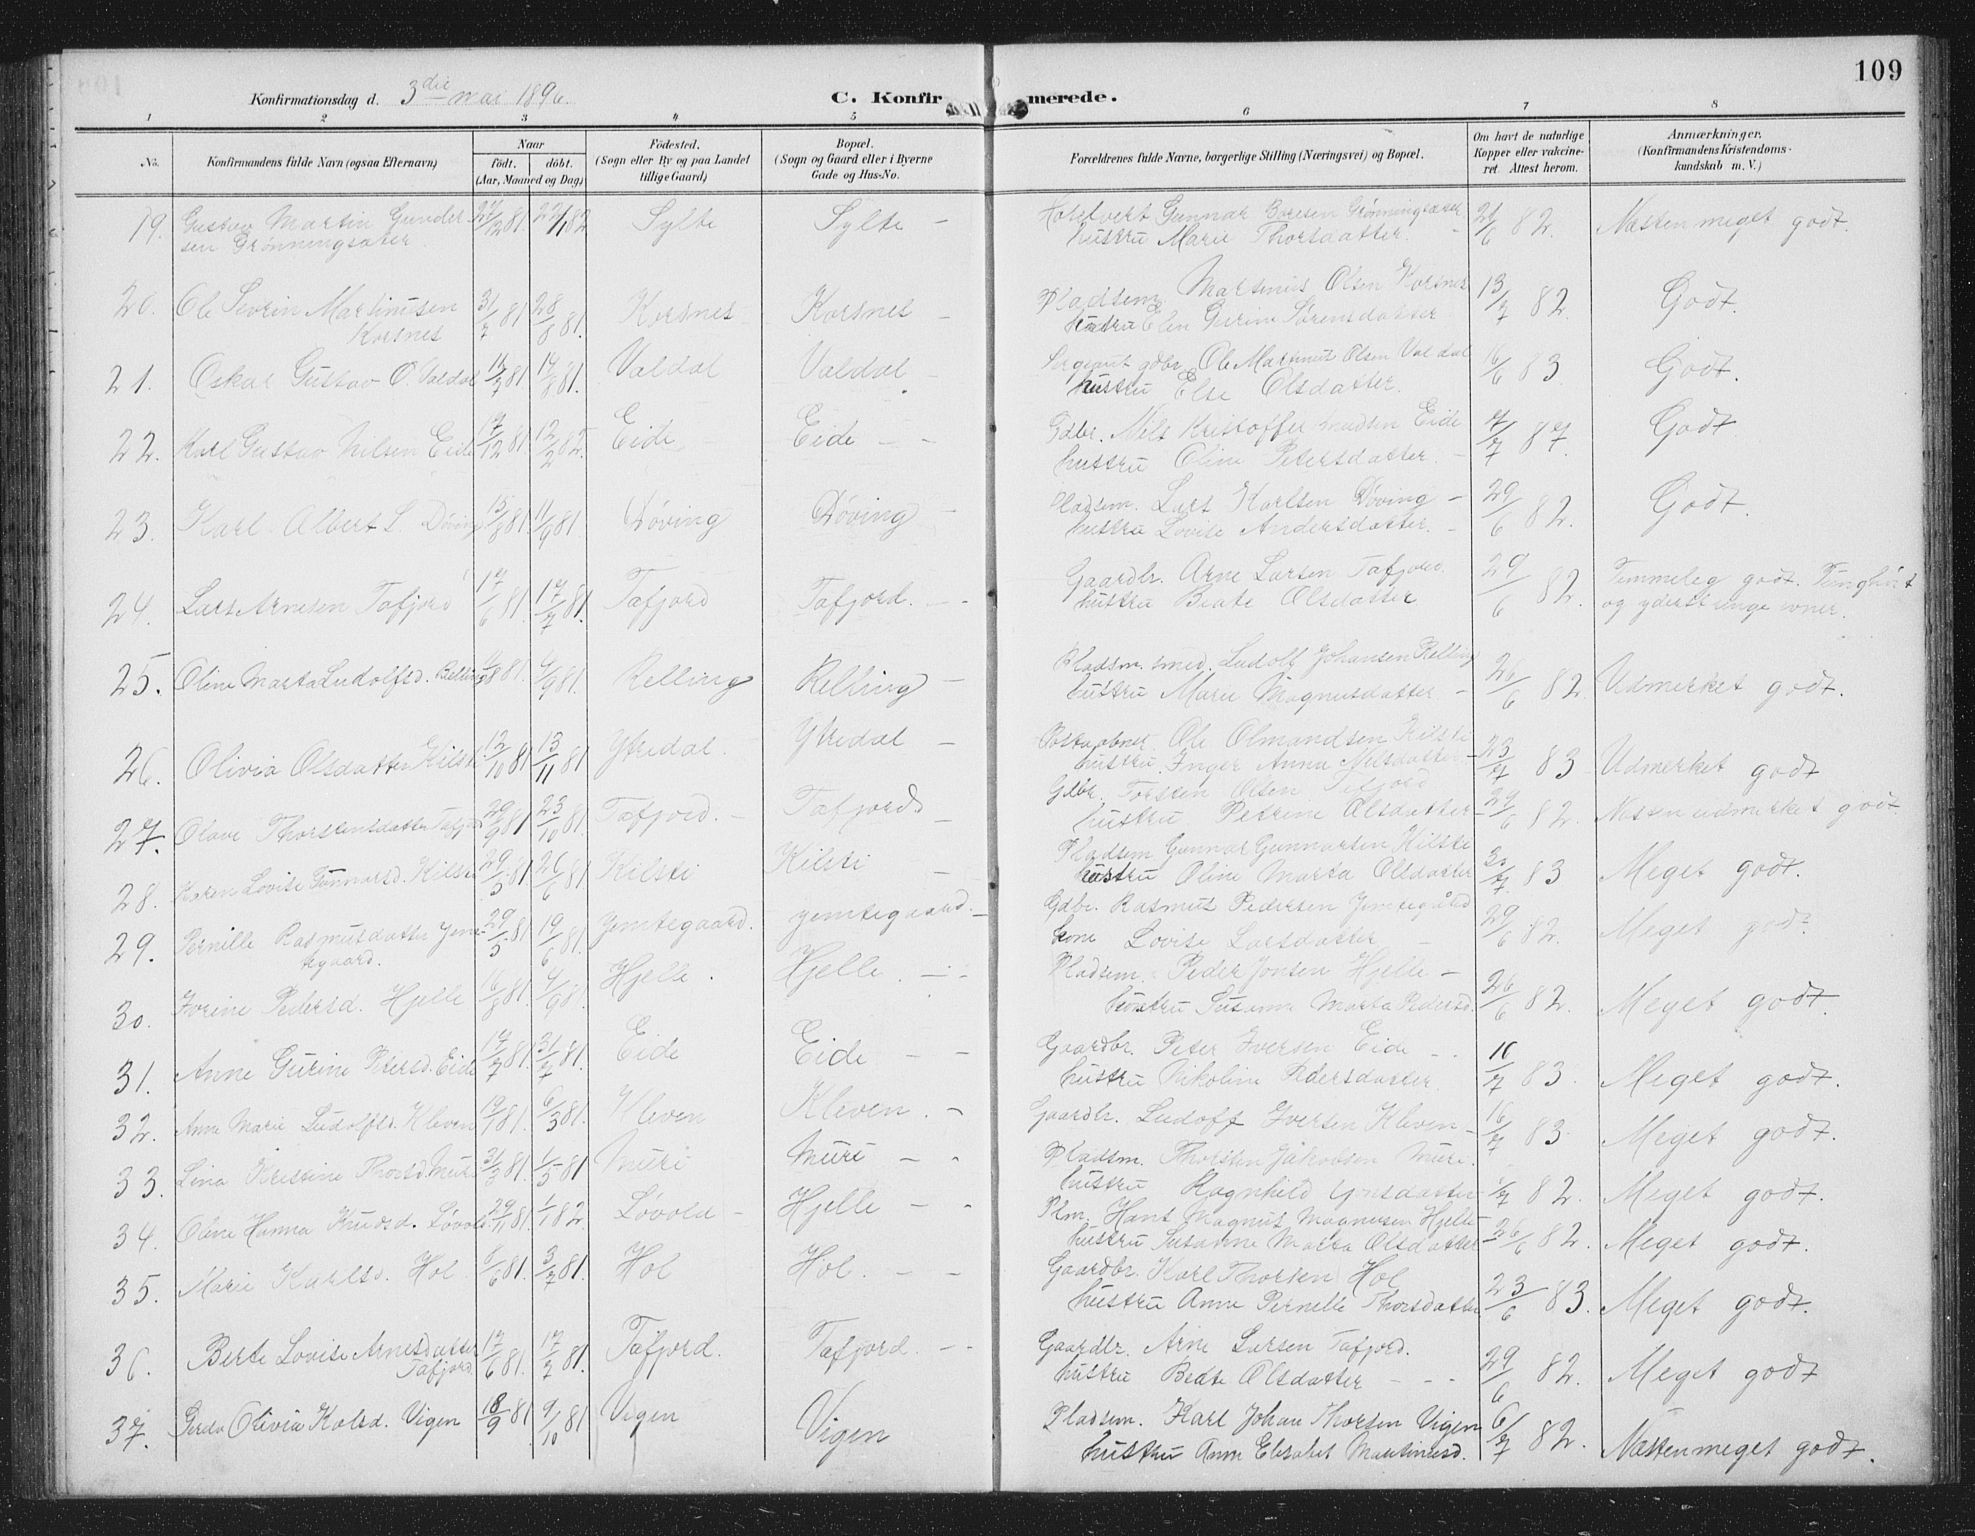 109
Konfirmationsdag d. 3die mai 1896.
C. Konfirmerede.
1 2 3 4 5 6 7 8
No.
Konfirmandens fulde Navn (ogsaa Efternavn)
Naar
födt. döbt.
(Aar, Maaned og Dag)
Födested.
(Sogn eller By og paa Landet
tillige Gaard)
Bopæl.
(Sogn og Gaard eller i Byerne
Gade og Hus-No.
Forældrenes fulde Navne, borgerlige Stilling (Næringsvei) og Bopæl.
Om havt de naturlige
Kopper eller vakcine-
ret. Attest herom.
Anmærkninger.
(Konfirmandens Kristendoms-
kundskab m. V.)
19. Gustav Martin Gunder 22/1 82 Sylte Sylte - Gunnar Boresen 82. Næsten meget godt.
sen Grønningsæter hustru Marie Thorsdatter.
20. Ole Sevrin Martinusen 31/7 81 28/8 81. Korsnes Korsnes - Pladsm. Martinus Olsen Korsnes 13/7 82. Godt.
Korsnes hustru Elen Gurine Sørensdatter
21. Oskar Gustav O. Valdal 81 14/8 81. Valdal Valdal - Sergeant gdbr. Ole Martinus Olsen Valdal 16/6 83. Godt.
hustru Else Olsdatter.
22. Karl Gustav Nilsen Eide 17/12 81 12/2 82. Eide Eide - - Gdbr. Nils Kristoffer Eide 7/7 87. Godt
hustru Oline Petersdatter. -
23. Karl Albert L. Døving 15/8 81. 11/9 81. Døving Døving - Pladsm. Lars Karlsen Døving - 29/6 82. Godt.
hustru Lovise Andersdatter. -
24. Lars Arnesen Tafjord 17/6 81. 17/7 81. Tafjord Tafjord. - - Gaardbr. Arne Larsen Tafjord. 29/6 82. Temmeleg godt.
hustru Beate Olsdatter og yderst ringe evner.
25. Oline Marta Ludolfsd. Relling 81. 4/9 81. Relling Relling - Pladsm. smed. Ludolf Johansen Relling 26/6 82. Udmerket godt.
hustru Marie Magnusdatter -
26. Olivia Olsdatter Kilsti 12/10 81 13/11 81 Ytredal. Ytredal - Ole Olmandsen Kilsti 23/7 83 Udmerket godt
hustru Inger Anna Nilsdatter -
27. Olave Thorstensdatter 29/9 81 23/10 81. Tafjord. - Tafjord - Gdbr. Torsten Olsen Tafjord 29/6 82. Næsten udmerket godt
hustru Petrine Olsdatter -
28. Karen Lovise Gunnarsd. Kilsti 29/5 81 26/6 81 Kilsti Kilsti - Pladsm. Gunnar Gunnarsen Kilsti 83 Meget godt.
hustru Oline Marta Olsdatter
29. Pernille Rasmusdatter Jemte- 29/5 81 19/6 81. Jemtegaard. Jemtegaard. - Gdbr. Rasmus Pedersen 29/6 82. Meget godt.
gaard. kone Lovise Larsdatter -
30. Ivrine Pedersd. Hjelle 16/8 81. 4/9 81. Hjelle. Hjelle. - Pladsm. Peder Jonsen Hjelle - 26/6 82. Meget godt.
hustru Susanna Marta Pedersd.
31. Anne Gurine Petersd. Eide 17/7 81. 31/7 81. Eide Eide - - Gaardbr. Peter Iversen Eide - 16/7 83. Meget godt.
hustru Nikoline Pedersdatter.
32. Anne Marie Ludolfsd. Kleven 19/1 81. 6/3 81. Kleven Kleven. - Gaardbr. Ludolf Iversen Kleven - 16/7 83. Meget godt.
33. Lina Kristine Thorsd. Muri 31/3 81. 1/5 81 Muri Muri - Pladsm. Thorsten Jakobsen Muri. 82. Meget godt.
hustru Ragnhild
34. Oline Hanna Knudsd. Løvold 29/11 81. 1/1 82. Løvold - Hjelle - Plm. Hans Magnus Magnusen Hjelle - 26/6 82. Meget godt.
hustru Susanne Marta Olsdatter
35. Marie Karlsd. Hol 6/6 81. 3/7 81. Hol Hol. - - Gaardbr. Karl Thorsen Hol 23/6 83. Meget godt.
hustru Anne Pernelle Thorsdatter
36. Berte Lovise Arnesdatter 17/6 81. 17/7 81. Tafjord. Tafjord. - - Gaardbr. Arne Larsen Tafjord. 29/6 82. Meget godt
Tafjord hustru Beate Olsdatter - - -
37. Gerda Olivia Kalsd. Vigen 18/9 81. 9/10 81 Vigen Vigen Pladsm. Karl Johan Thorsen Vigen 6/7 82. Næsten meget godt.
hustru Anne Elesabet Martinusd.